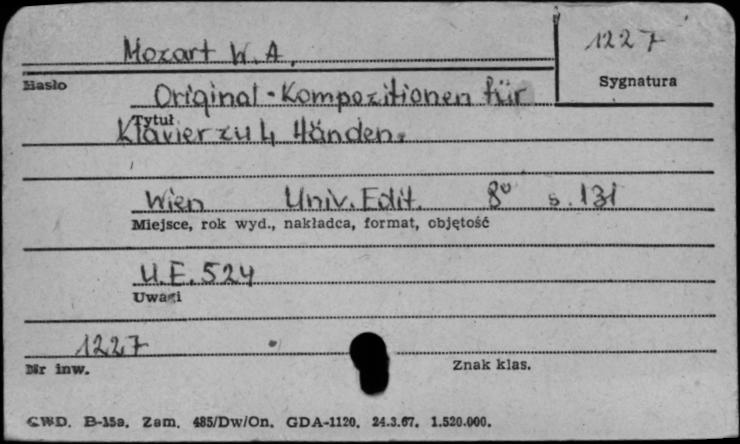 Mozart W. A. 1227
Hasło Sygnatura
Original-Kompozitionen für
Tytuł
Klavier zu 4 Händen.
Wien Univ. Edit. 8° s. 131
Miejsce, rok wyd., nakładca, format, objętość
U.E. 524
Uwagi
1227
Nr inw. Znak klas.
CWD. B-15a. Zam. 485/Dw/On. GDA-1120. 24.3.67. 1.520.000.